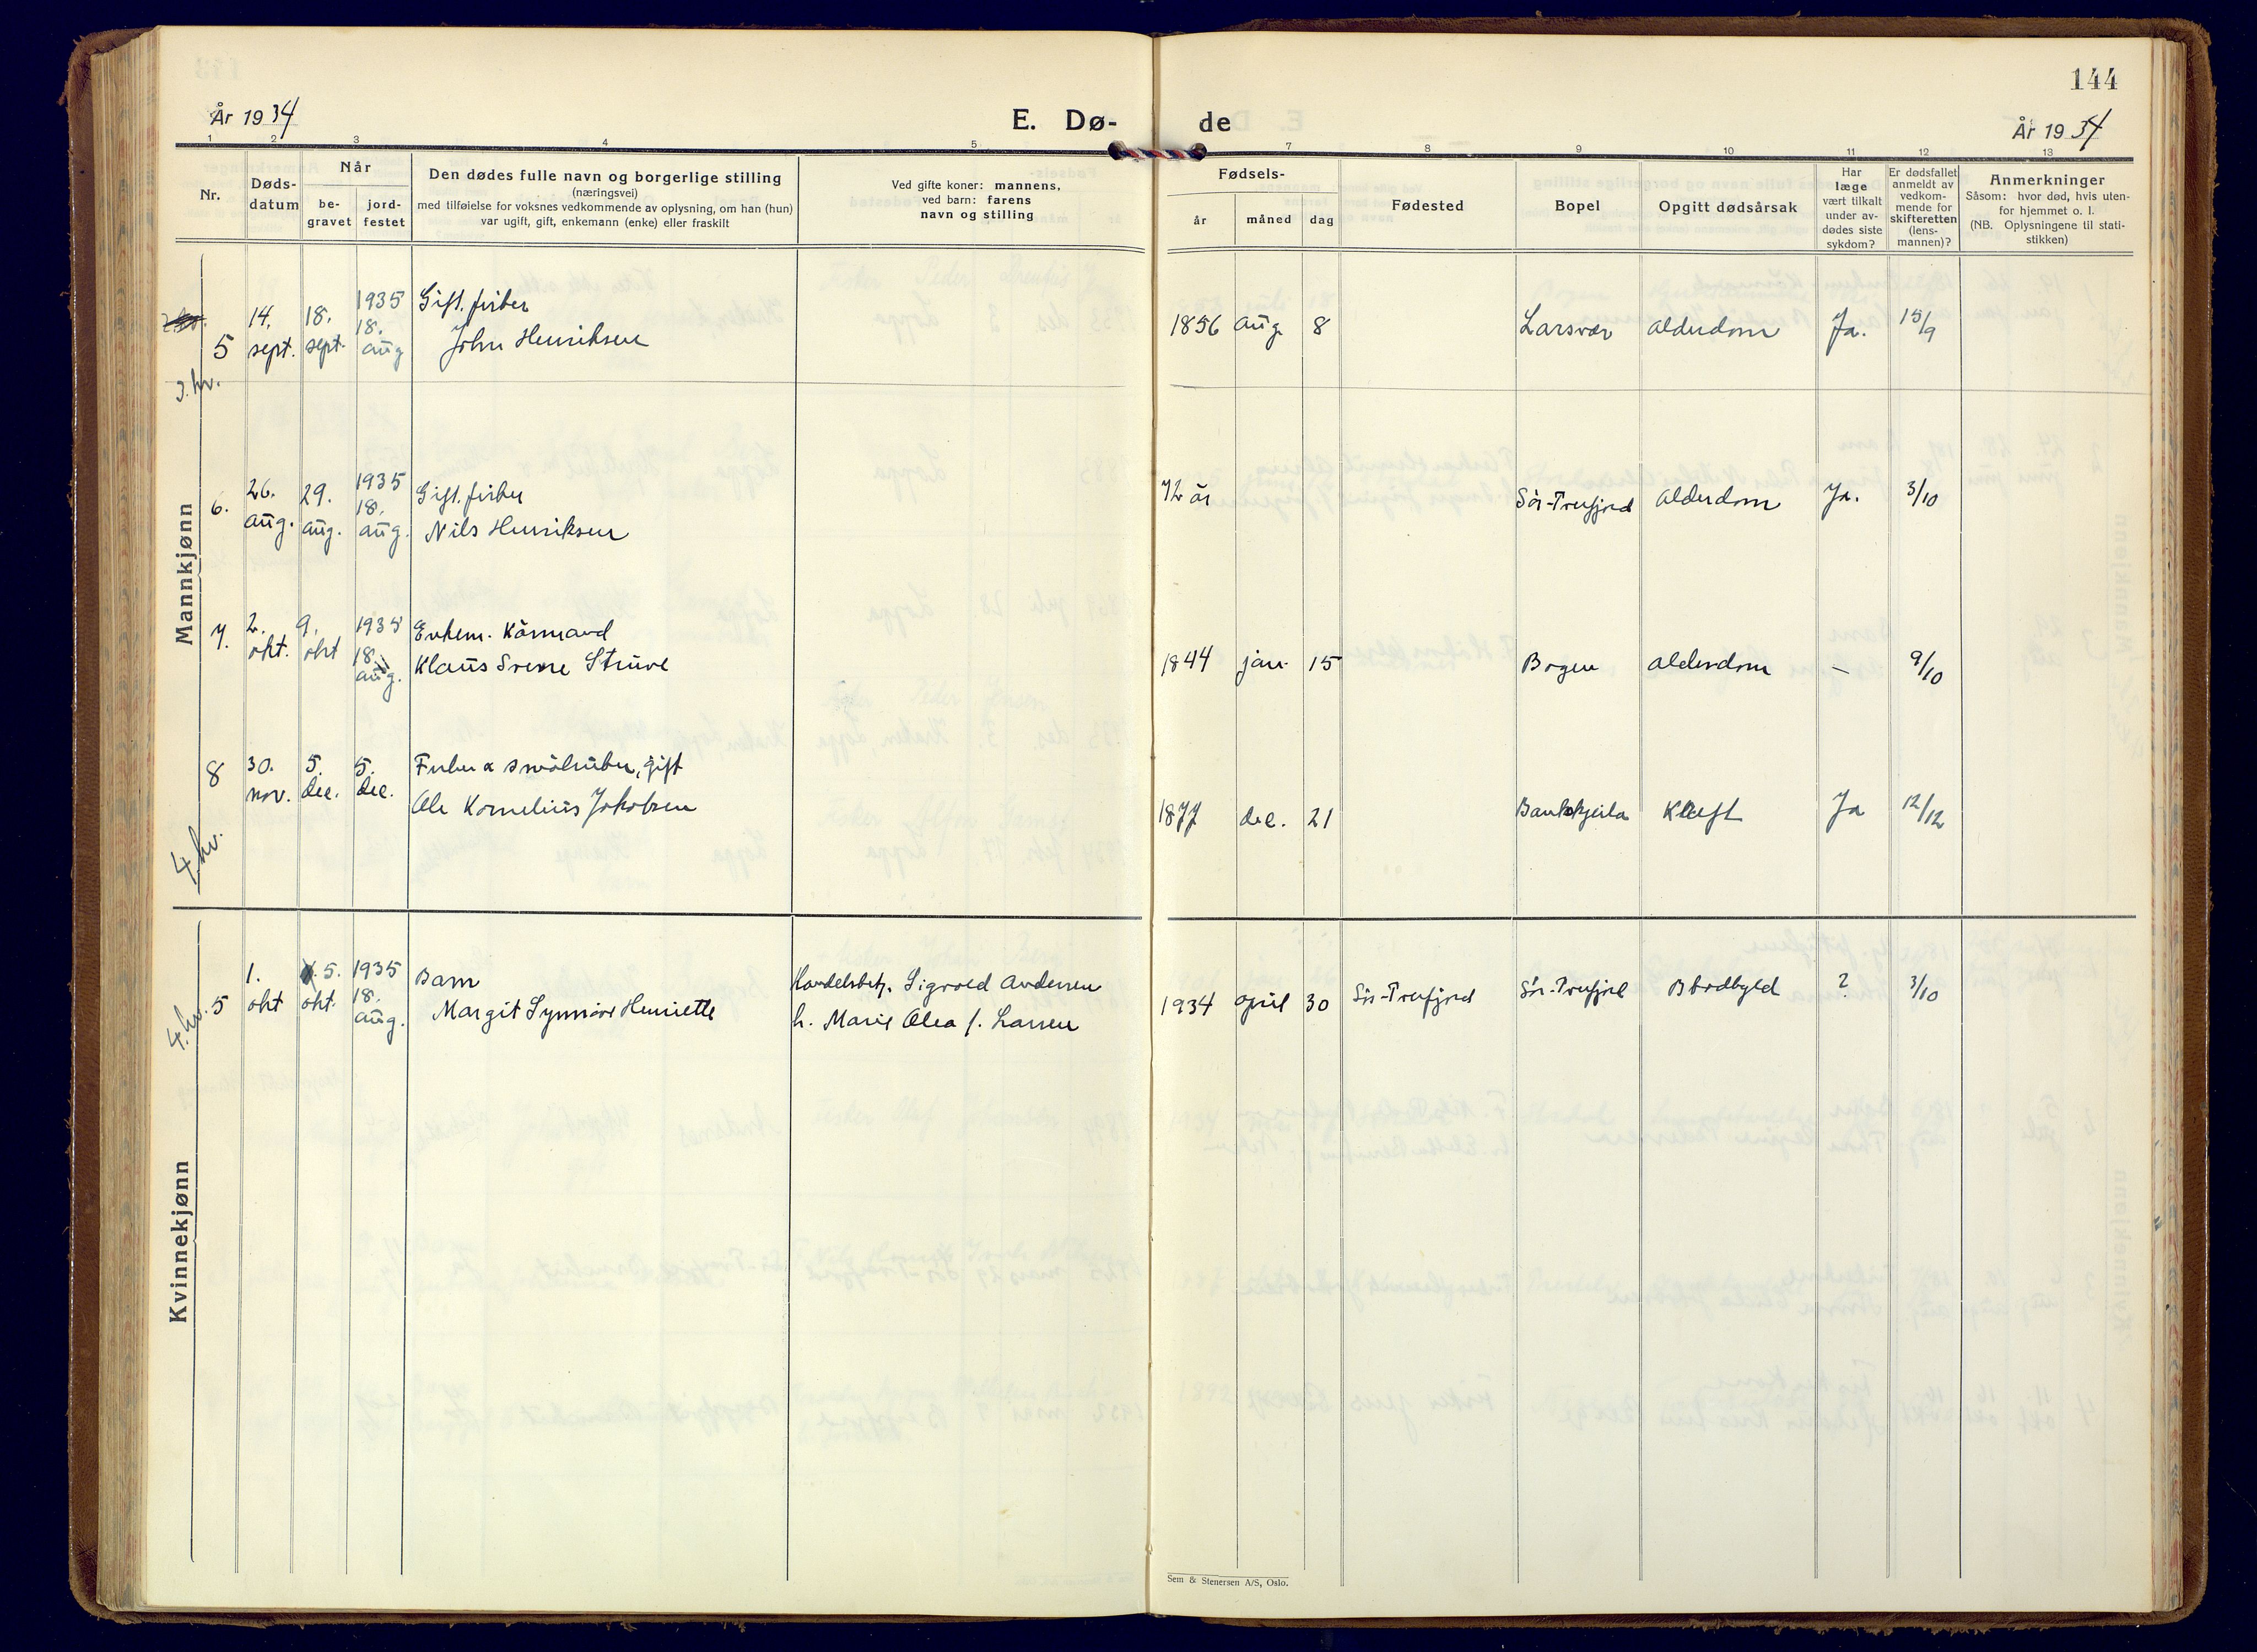 144
År 1934
E. Dø-
de
År 1934
1 2 3 4 5 7 8 9 10 11 12 13
Nr.
Døds-
datum
Når
be-
gravet
jord-
festet
Den dødes fulle navn og borgerlige stilling
(næringsvei)
med tilføielse for voksnes vedkommende av oplysning, om han (hun)
var ugift, gift, enkemann (enke) eller fraskilt
Ved gifte koner: mannens,
ved barn: farens
navn og stilling
Fødsels-
år måned dag
Fødested
Bopel
Opgitt dødsårsak
Har
læge
vært tilkalt
under av-
dødes siste
sykdom?
Er dødsfallet
anmeldt av
vedkom-
mende for
skifteretten
(lens-
mannen)?
Anmerkninger
Såsom: hvor død, hvis uten-
for hjemmet o. l.
(NB. Oplysningene til stati-
stikken)
Mannkjønn
5 14. sept. 18. sept. 1935 18. aug Gift. fisker
John Henriksen
1856 aug. 8 Larsvær alderdom Ja. 15/9
3. kv.
6. 26. aug. 29. aug. 1935 18. aug. Gift. fisker
Nils Henriksen
72 år Sör-Trefjord alderdom Ja. 3/10
7. 2. okt. 9. okt 1935 18. aug. Enkem. Kårmand
Klaus Sverre Struve
1844 jan. 15 Bogen alderdom — 9/10
8 30. nov. 5. dec. 5. dec. Fisker & småbruker, gift
Ole Kornelius Jakobsen
1877 dec. 21 Bankekjeila Kræft Ja 12/12
4. kv.
Kvinnekjønn
4. kv. 5 1. okt 5. okt. 1935 18. aug. Barn
Margit Synnöve Henriette
Handelsbetj. Sigvald Andersen
h. Marie Olea f. Larsen
1934 april 30 Sör-Trefjord Sör-Trefjord Blodbyld ? 3/10
Sem & Stenersen A/S, Oslo.